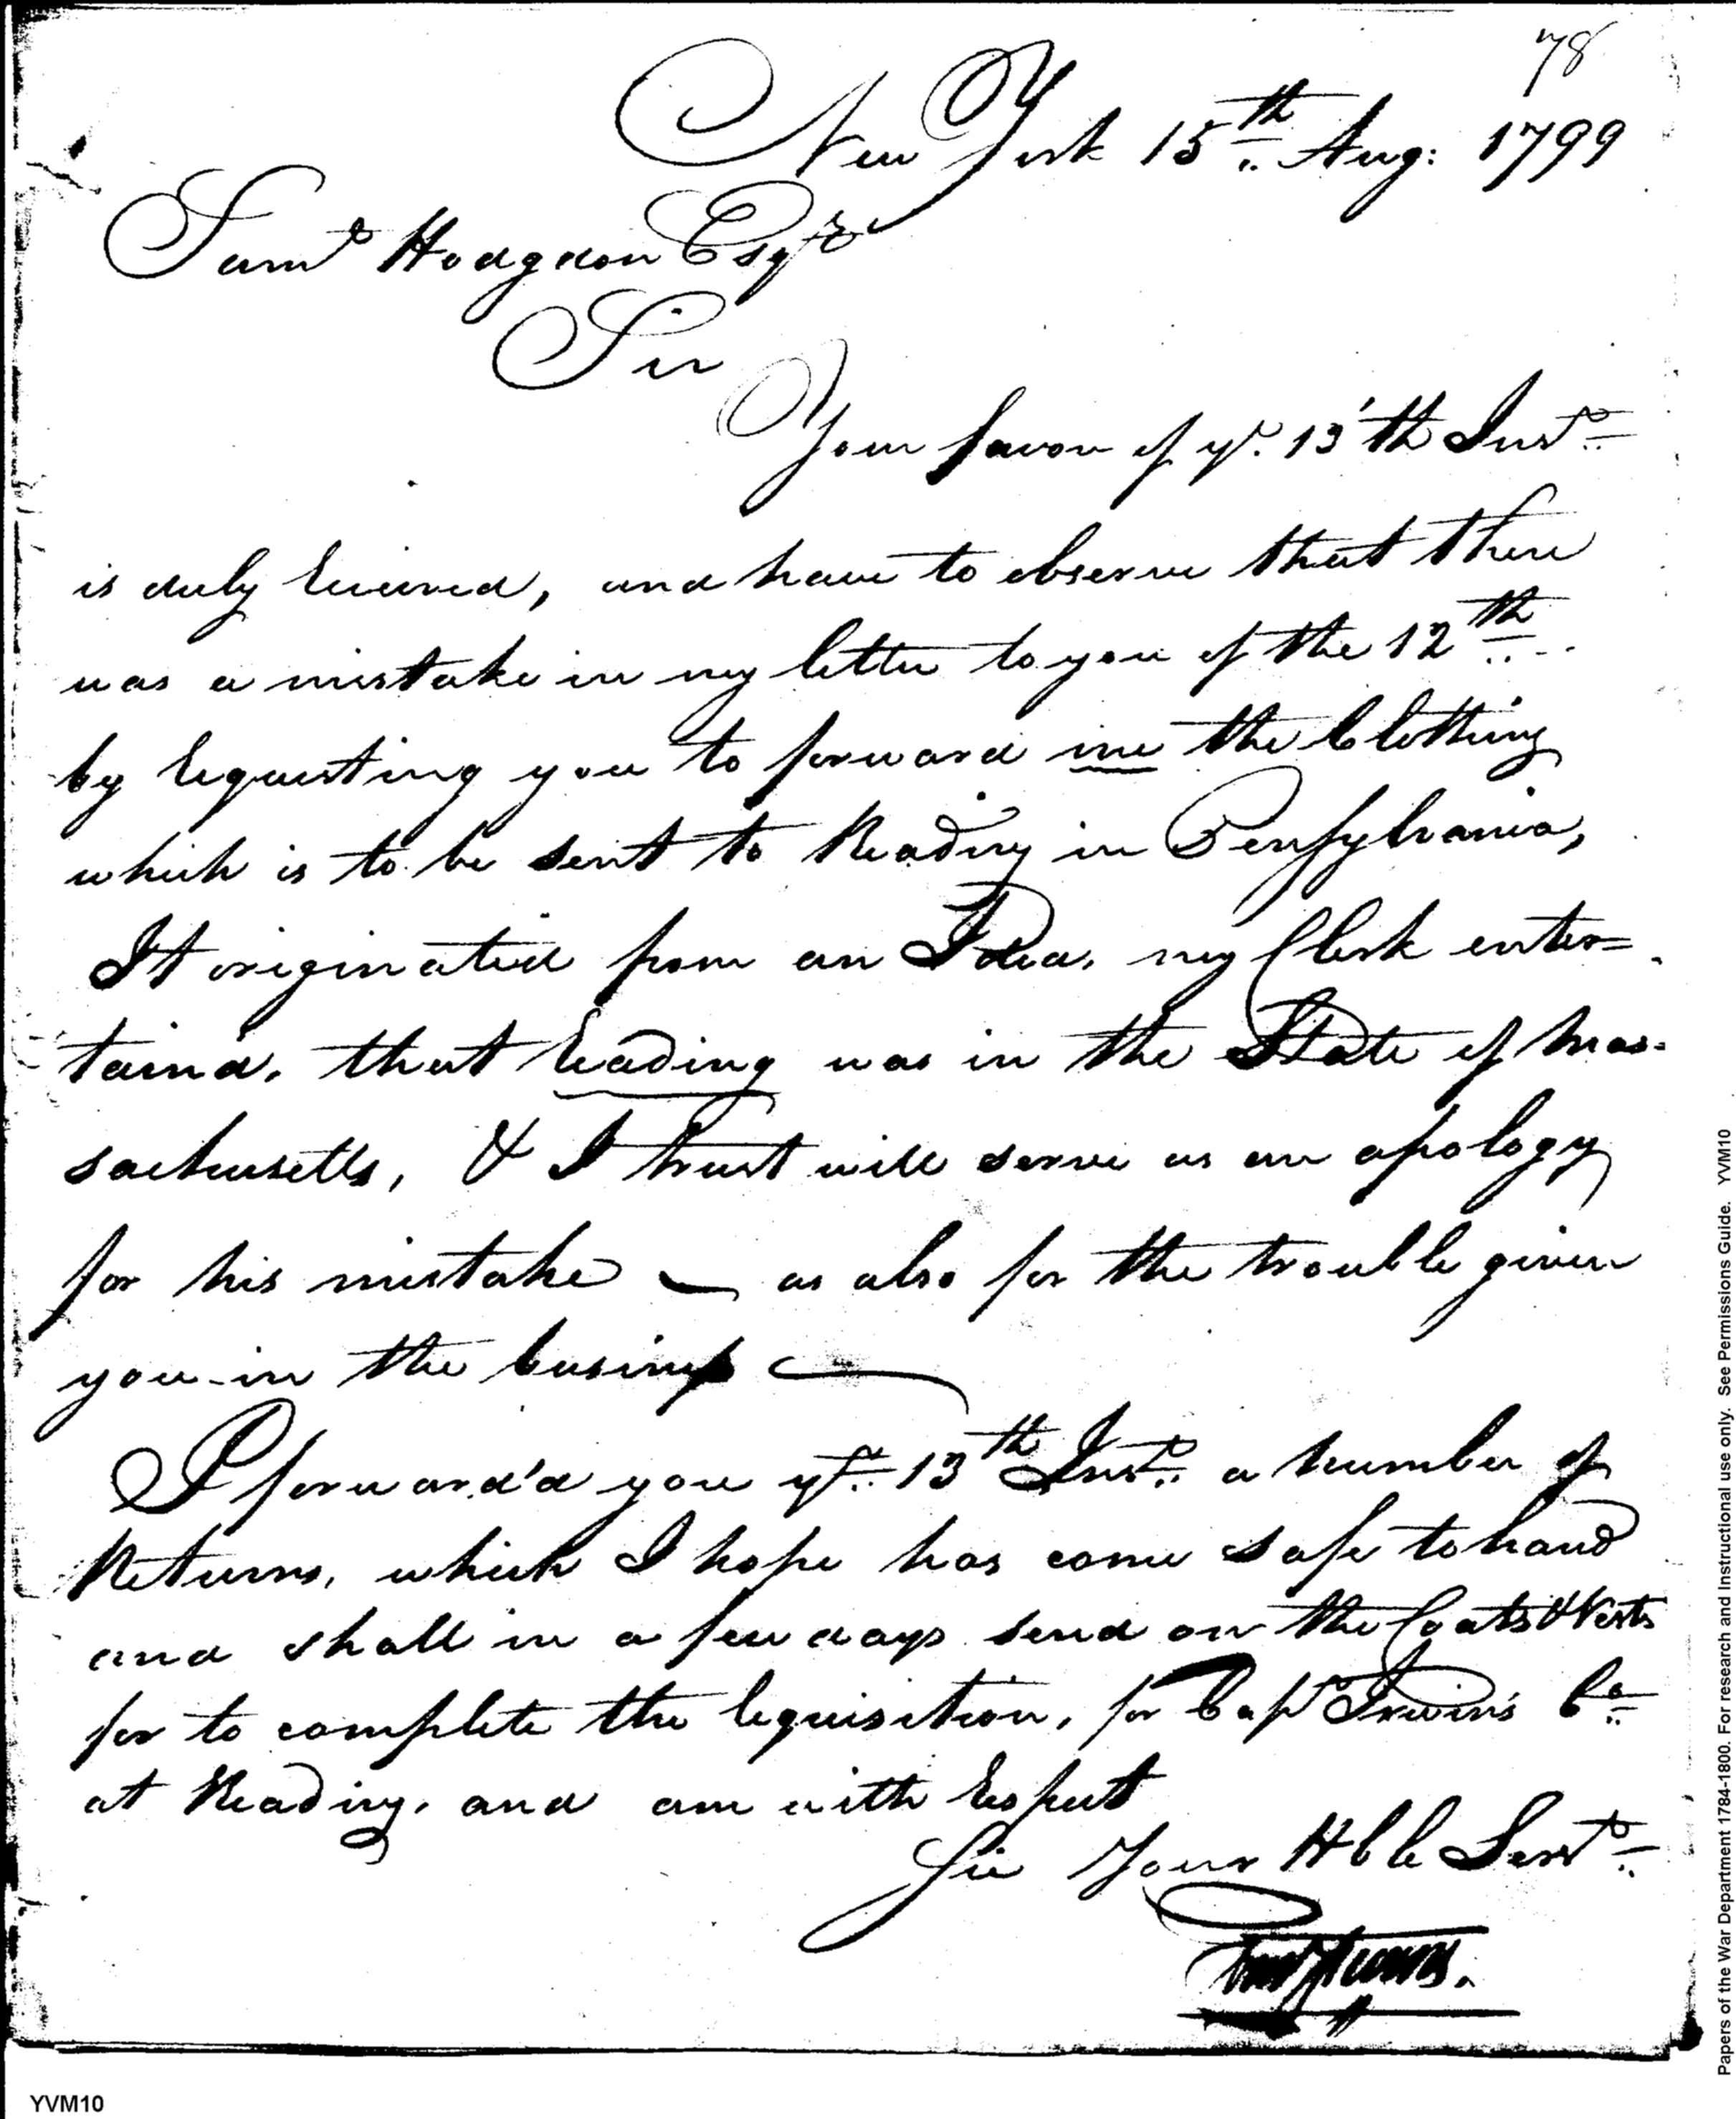 78
New York 15th Aug: 1799
Saml Hodgdon Esqr
Sir
Your favor of ye. 13'th Inst
is duly received, and have to observe that there
was a mistake in my letter to you of the 12th
by requesting you to forward me the Clothing
which is to be sent to Reading in Pensylvania,
It originated from an Idea, my Clerk enter=
tain'd, that reading was in the State of Mas=
sachusetts, & I trust will serve as an apology
for his mistake — as also for the trouble given
you in the business —
I forward'd you ye 13th Inst. a number of
Returns, which I hope has come safe to hand
and shall in a few days send on the Coats & Vests
for to complete the requisition, for Capt Irwin's Co
at Reading, and am with respect
Sir Your Hble Servt
YVM10
Papers of the War Department 1784-1800. For research and Instructional use only. See Permissions Guide. YVM10